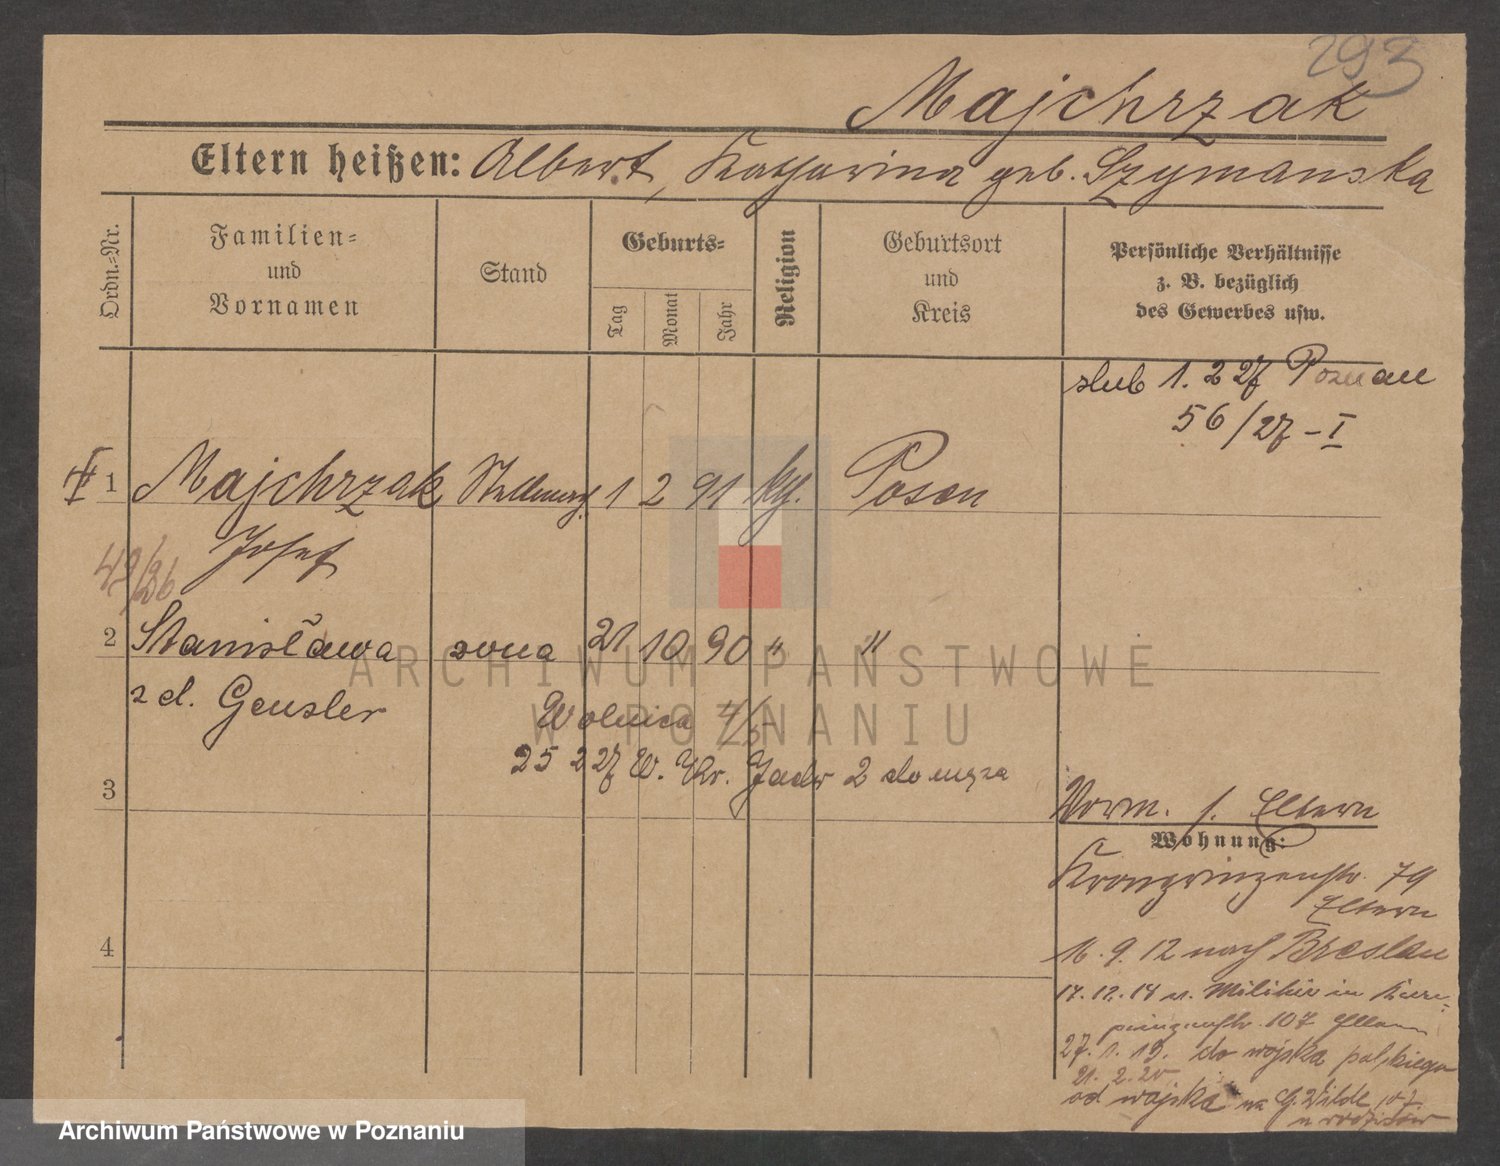 293
Majchrzak
Eltern heißen: Albert, Katharina geb. Szymanska
Ordn.=Nr.
Familien=
und
Vornamen
Stand
Geburts=
Tag
Monat
Jahr
Religion
Geburtsort
und
Kreis
Persönliche Verhältnisse
z. B. bezüglich
des Gewerbes usw.
slub 1. 2 27 Poznan
56/27 - I
1 Majchrzak 1 2 91 kth. Posen
Josef
43/26
2 Stanisława zona 21 10 90 " "
z d. Gensler
Wolnica 4/5
25 2 27 W. Kr. Jadw 2 do męza
3
Vorm. s. Eltern
Wohnung:
Kronprinzenstr. 79
Eltern
4
16. 9. 12 nach Breslau
17. 12. 18 v. Militär in Kron=
prinzenstr. 107 Eltern
27. 1. 19. do wojska polskiego
21. 2. 20
od wojska na G. Wilde 107
u rodziców
ARCHIWUM PAŃSTWOWE
W POZNANIU
Archiwum Państwowe w Poznaniu